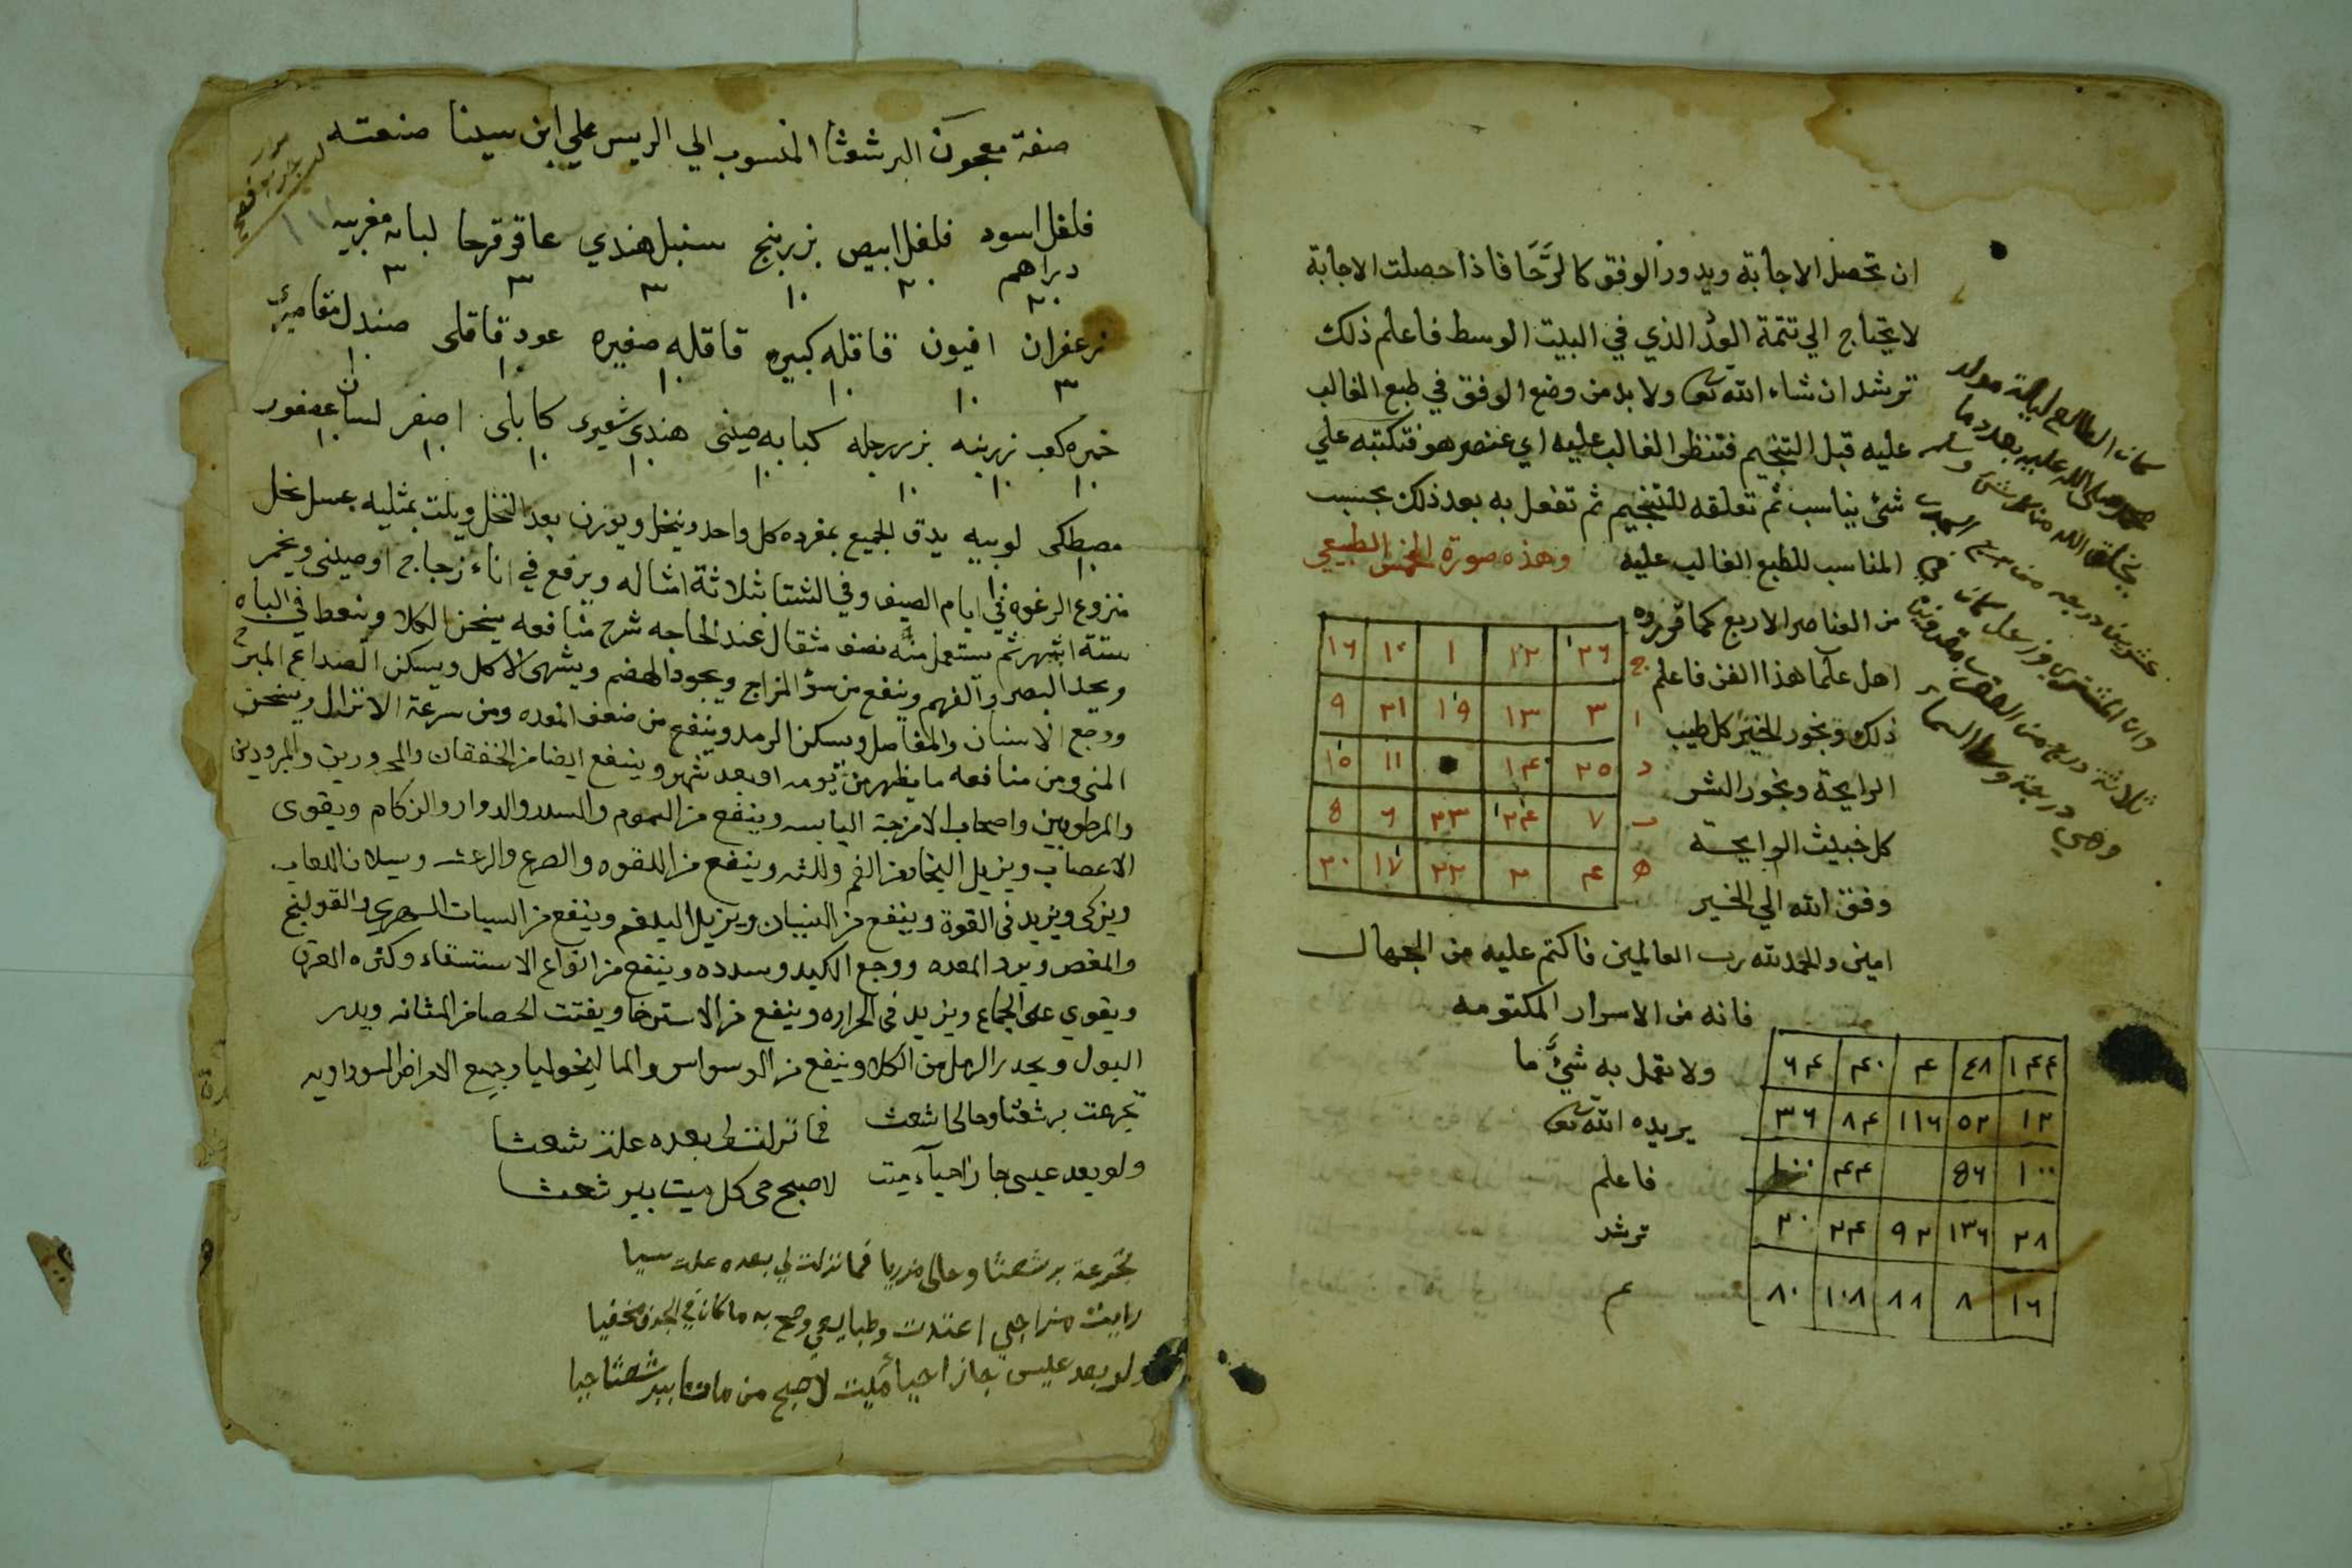 ان تحصل الاجابة ويدور الوفق كالرَّحَا فاذا حصلت الاجابة
لا يحتاج الي تتمة العدد الذي في البيت الوسط فاعلم ذلك
ترشد ان شاء الله تعا ولا بد من وضع الوفق في طبع الغالب
عليه قبل التنجيم فتنظر الغالب عليه اي عنصر هو فتكتبه علي
شئ يناسب ثم تعلقه للتنجيم ثم تفعل به بعد ذلك بحسب
المناسب للطبع الغالب عليه وهذه صورة المخمس الطبيعي
من العناصر الاربع كما قرروه
اهل علما هذا الفن فاعلم
ذلك وبخور الخير كل طيب
الرايحة وبخور الشر
كل خبيث الرايحة
وفق الله الي الخير
٢٦ ١٢ ١ ١٠ ١٦
٣ ١٣ ١٩ ٢١ ٩
٢٥ ١۴ ١١ ١٥
٧ ٢۴ ٢٣ ٦ 8
۴ ٢ ٢٢ ١٧ ٢٠
امين والحمد لله رب العالمين فاكتم عليه من الجهال
فانه من الاسرار المكتومه
ولا تعمل به شيءً ما
يريده الله تعا
فاعلم
ترشد
م
١۴۴ ٤٨ ۴ ۴٠ ٦۴
١٢ ٥٢ ١١٦ ٨۴ ٣٦
١٠٠ 8٦ ۴۴
٢٨ ١٣٦ ٩٢ ٢۴ ٢٠
١٦ ٨ ٨٨ ١٠٨ ٨٠
كان الطالع ليلة مولد
صلى الله عليه وسلم
ثلاثة درج من العقرب
وهي درجة وسط السماء
صفة معجون البرشعثا المنسوب الي الريس علي ابن سينا صنعته
فلفل اسود فلفل ابيض بزر بنج سنبل هندي عاقر قرحا لبانه مغربيه
دراهم
٢٠ ٢٠ ١٠ ٣ ٣ ٣
زعفران افيون قاقله كبيره قاقله صغيره عود قاقلى صندل مقاصيري
٣ ١٠ ١٠ ١٠ ١٠ ١٠
بزر رجله كبابه صينى هندي شعيري كابلى اصفر لسان عصفور
١٠ ١٠ ١٠ ١٠ ١٠ ١٠ ١٠ ١٠
مصطكى لوبيه يدق الجميع بمفرده كل واحد وينخل ويوزن بعد النخل ويلت بمثليه عسل نحل
١٠ ١٠
منزوع الرغوه في ايام الصيف وفي الشتا بثلاثة امثاله ويرفع في اناء زجاج او صينى ويخمر
ستة اشهر ثم يستعمل منه نصف مثقال عند الحاجه شرح منافعه يسخن الكلا وينعظ في الباه
ويحد البصر والفهم وينفع من سؤ المزاج ويجود الهضم ويشهى الاكل ويسكن الصداع المبرح
ووجع الاسنان والمفاصل ويسكن الرمد وينفع من ضعف المعده ومن سرعة الانزال ويسخن
المنى ومن منافعه ما يظهر من يومه او بعد شهر وينفع ايضا من الخفقان والمحرورين والمبرودين
والمرطوبين واصحاب الامزجة اليابسه وينفع من السموم والسدد والدوار والزكام ويقوى
الاعصاب ويزيل البخار من الفم واللثه وينفع من اللقوه والصرع والرعشه وسيلان اللعاب
ويزكى ويزيد فى القوة وينفع من النسيان ويزيل البلغم وينفع من السبات السهري والقولنج
والمغص وبرد المعده ووجع الكبد وسدده وينفع من انواع الاستسقاء وكثره العرق
ويقوي على الجماع ويزيد فى الحراره وينفع من الاسترخا ويفتت الحصا من المثانه ويدر
البول ويحدر الرمل من الكلا وينفع من الوسواس والماليخوليا وجميع الامراض السوداويه
تجرعت برشعثا وحالى اشعث فما نزلت لى بعده علة شعثا
ولو بعد عيسى جاز احياء ميت لاصبح حى كل ميت ببرشعثا
تجرعة برشعثا وحالى مزريا فما نزلت لي بعده علت سيا
رايت مزاجي اعتدت وطبايعي وصح به ما كان في الجوف مخفيا
ولو بعد عيسى جاز احياء ميت لاصبح من مات ببرشعثا حيا